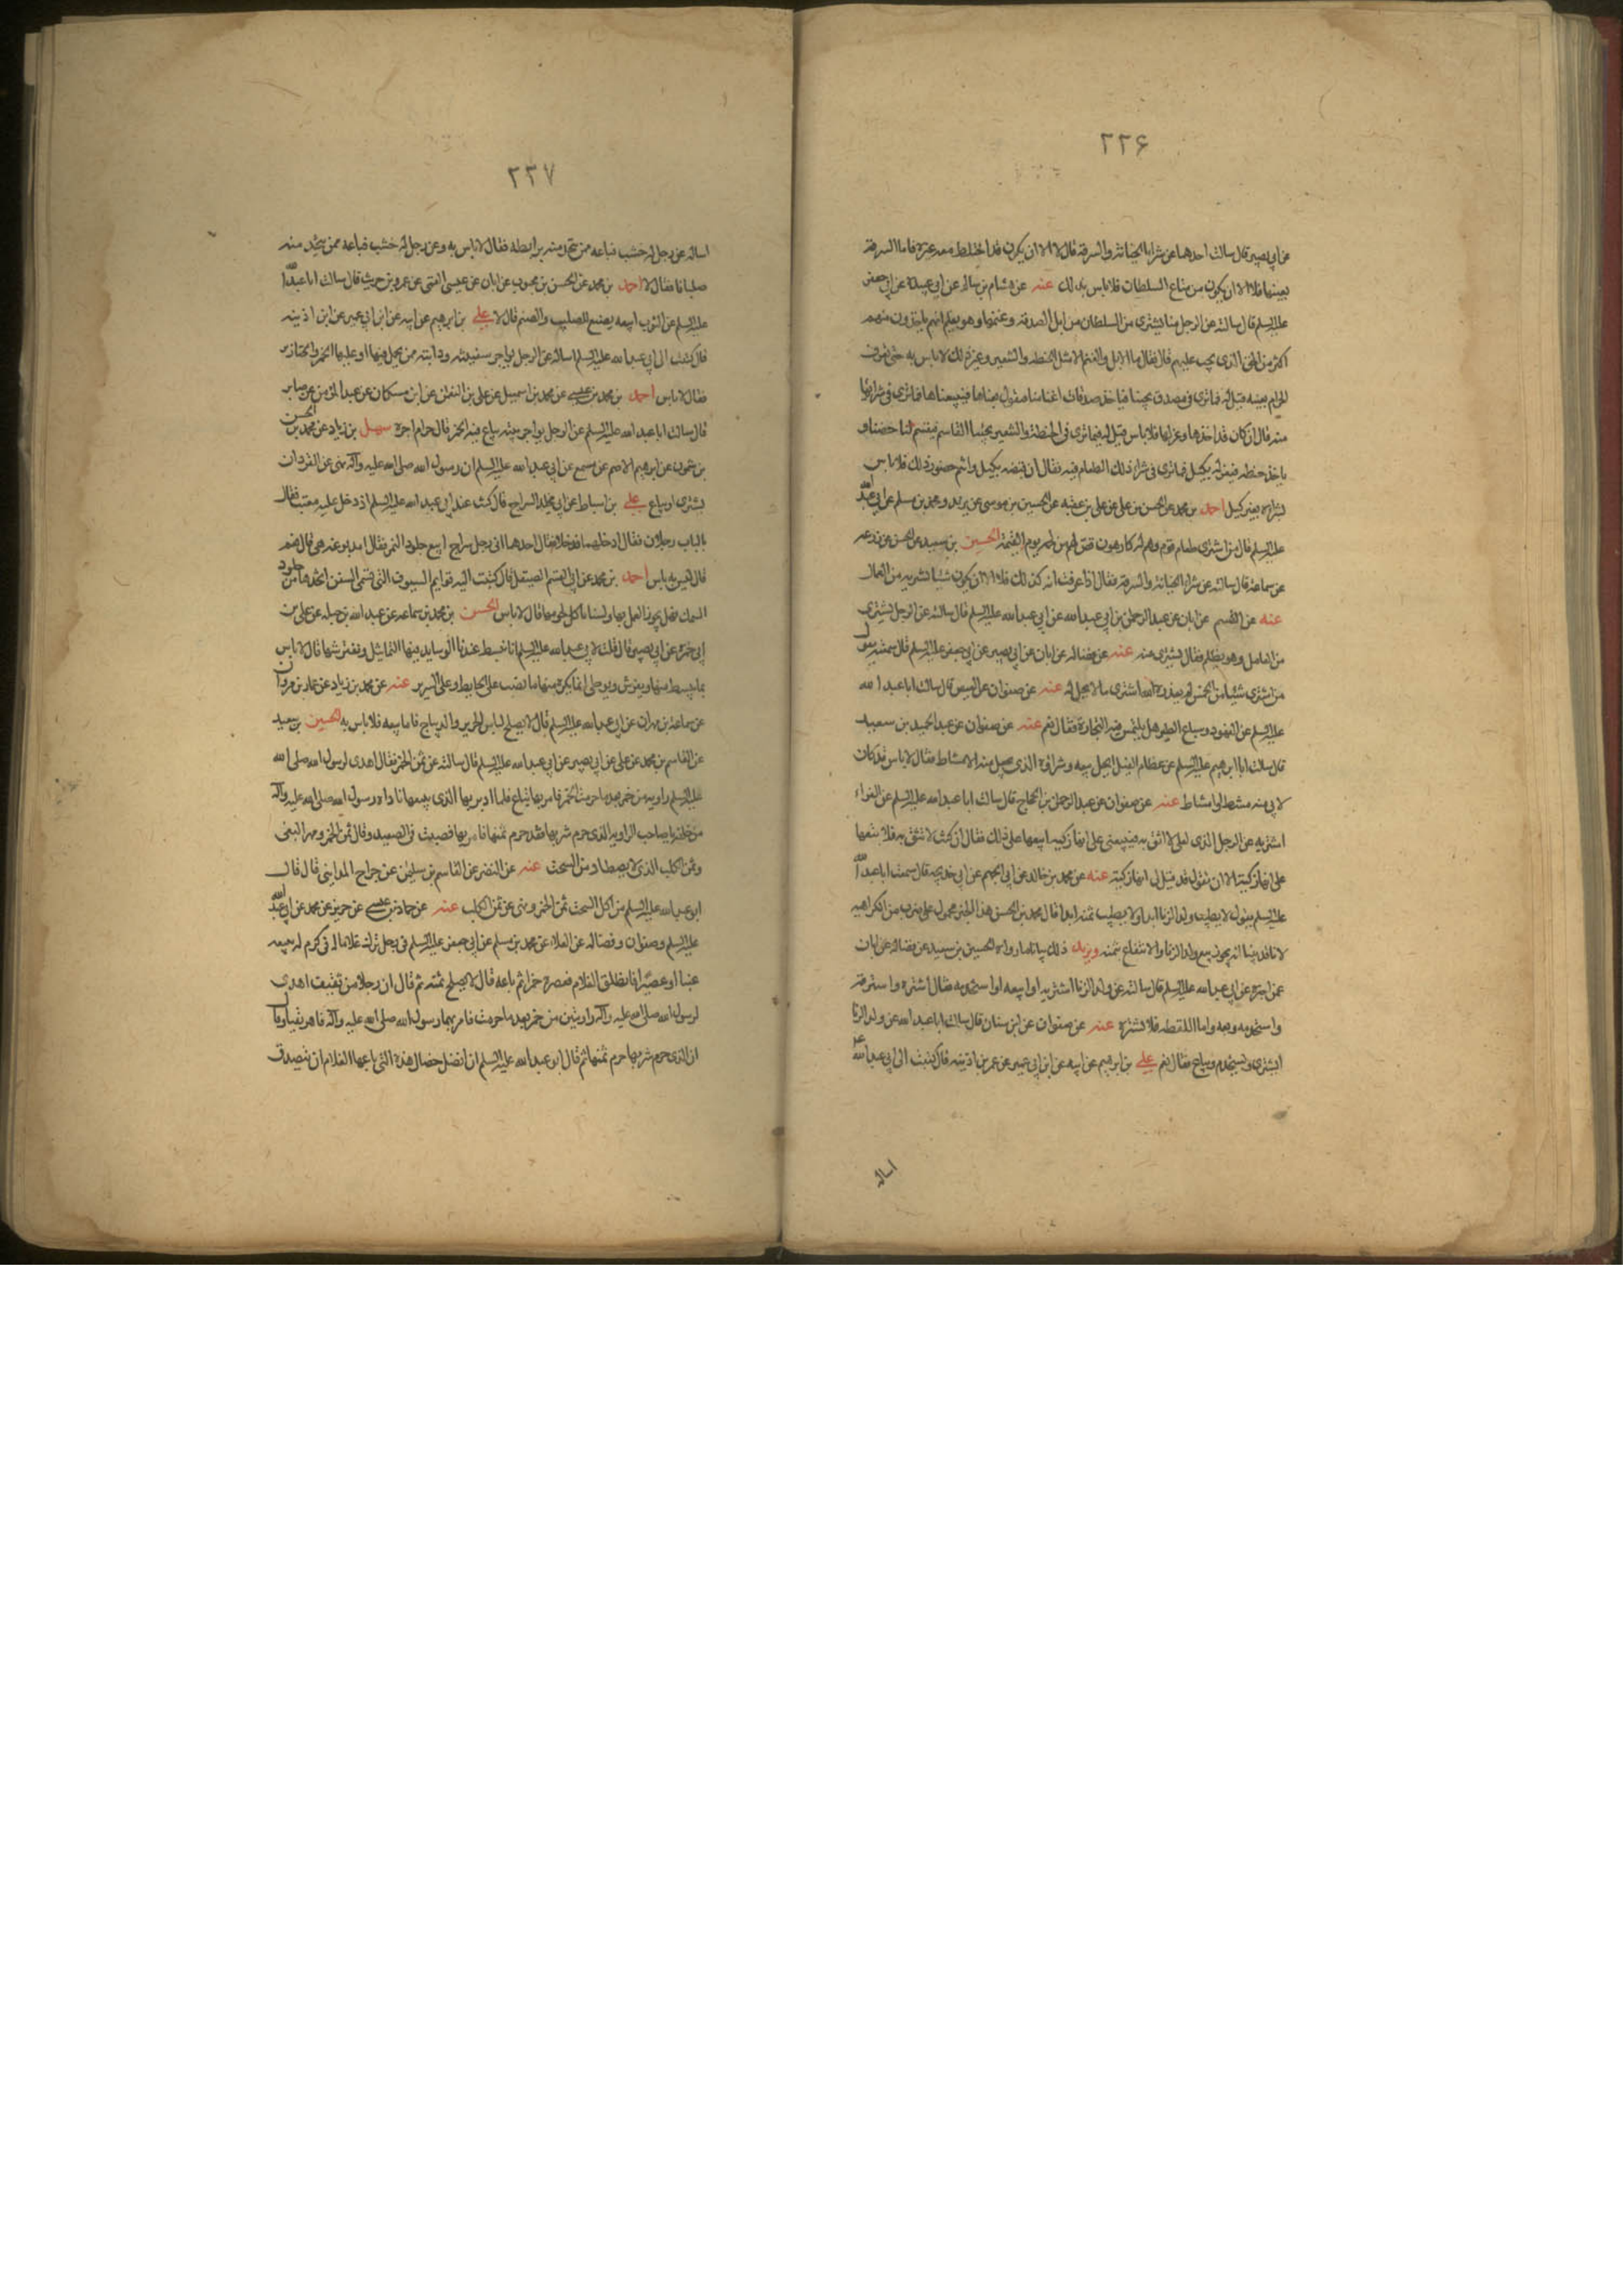 ٢٢۶
عن ابي بصير قال سالت احدهما عن شراء الخيانة والسرقة قال لا الا ان يكون قد اختلط معه غيره فاما السرقة
بعينها فلا الا ان يكون من متاع السلطان فلا باس بذلك عنه عن هشام بن سالم عن ابي عبيدة عن ابي جعفر
عليه السلم قال سالته عن الرجل منا يشتري من السلطان من ابل الصدقة وغنمها وهو يعلم انهم ياخذون منهم
اكثر من الحق الذي يجب عليهم قال فقال ما الابل والغنم الا مثل الحنطة والشعير وغير ذلك لا باس به حتى تعرف
الحرام بعينه قيل له فما ترى في مصدق يجيئنا فياخذ صدقات اغنامنا فنقول بعناها فيبيعناها فما ترى في شرائها
منه قال ان كان قد اخذها وعزلها فلا باس قيل له فما ترى في الحنطة والشعير يجيئنا القاسم فيقسم لنا حظنا و
ياخذ حظه فيعزله بكيل فما ترى في شراء ذلك الطعام فيه فقال ان قبضه بكيل وانتم حضور ذلك فلا باس
بشرائه بغير كيل احمد بن محمد عن الحسن بن علي عن علي بن عقبه عن الحسين بن موسى عن بريد ومحمد بن مسلم عن ابي عبد الله
عليه السلم قال من اشترى طعام قوم وهم له كارهون قص لهم من لحمه يوم القيمة الحسين بن سعيد عن الحسن عن زرعه
عن سماعة قال سالته عن شراء الخيانة والسرقة فقال اذا عرفت انه كذلك فلا الا ان يكون شيئا تشتريه من العمال
عنه عن القسم عن ابان عن عبد الرحمن بن ابي عبد الله عن ابي عبد الله عليه السلم قال سالته عن الرجل يشتري
من العامل وهو يظلم فقال يشتري منه عنه عن فضاله عن ابان عن ابي بصير عن ابي جعفر عليه السلم قال سمعته يقول
من اشترى شيئا من الخمس لم يعذره الله اشترى ما لا يحل له عنه عن صفوان عن العيص قال سالت ابا عبد الله
عليه السلم عن الفهود وسباع الطير هل يلتمس فيه التجارة فقال نعم عنه عن صفوان عن عبد الحميد بن سعيد
قال سالت ابا ابرهيم عليه السلم عن عظام الفيل ايحل بيعه وشراؤه الذي يعمل منه الامشاط فقال لا باس قد كان
لابي منه مشط او امشاط عنه عن صفوان عن عبد الرحمن بن الحجاج قال سالت ابا عبد الله عليه السلم عن الفراء
اشتريه عن الرجل الذي لعلي لا اثق به فيبيعني على انها زكيه ابيعها على ذلك فقال ان كنت لا تثق به فلا تبعها
على انها زكية الا ان تقول قد قيل لي انها زكية عنه عن محمد بن خالد عن ابي الجهم عن ابي خديجه قال سمعت ابا عبد الله
عليه السلم يقول لا يطيب ولد الزنا ابدا ولا يطيب ثمنه ابدا قال محمد بن الحسن هذا الخبر محمول على ضرب من الكراهيه
لانا قد بينا انه يجوز بيع ولد الزنا والانتفاع بثمنه ويزيد ذلك بيانا ما رواه الحسين بن سعيد عن فضاله عن ابان
عمن اخبره عن ابي عبد الله عليه السلم قال سالته عن ولد الزنا اشتريه او ابيعه او استخدمه فقال اشتره واسترقه
واستخدمه وبعه واما اللقطه فلا تشتره عنه عن صفوان عن ابن سنان قال سالت ابا عبد الله عن ولد الزنا
ايشترى ويستخدم ويباع فقال نعم علي بن ابرهيم عن ابيه عن ابن ابي عمير عن عمر بن اذينه قال كتبت الى ابي عبد الله
اساله
٢٢٧
اساله عن رجل له خشب فباعه ممن يتخذ منه برابط فقال لا باس به وعن رجل له خشب فباعه ممن يتخذ منه
صلبانا فقال لا احمد بن محمد عن الحسن بن محبوب عن ابان عن عيسى القمي عن عمرو بن حريث قال سالت ابا عبد الله
عليه السلم عن التوت ابيعه يصنع للصليب والصنم قال لا علي بن ابرهيم عن ابيه عن ابن ابي عمير عن ابن اذينه
قال كتبت الى ابي عبد الله عليه السلم اساله عن الرجل يواجر سفينته ودابته ممن يحمل فيها او عليها الخمر والخنازير
فقال لا باس احمد بن محمد بن عيسى عن محمد بن اسمعيل عن علي بن النعمن عن ابن مسكان عن عبد المؤمن عن صابر
قال سالت ابا عبد الله عليه السلم عن الرجل يواجر بيته يباع فيه الخمر قال حرام اجره سهل بن زياد عن محمد بن الحسن
بن شمون عن ابرهيم الاصم عن مسمع عن ابي عبد الله عليه السلم ان رسول الله صلى الله عليه وآله نهى عن القرد ان
يشترى او يباع علي بن اسباط عن ابي مخلد السراج قال كنت عند ابي عبد الله عليه السلم اذ دخل عليه معتب فقال
بالباب رجلان فقال ادخلهما فدخلا فقال احدهما اني رجل سراج ابيع جلود النمر فقال امدبوغه هي قال نعم
قال ليس به باس احمد بن محمد عن ابي القسم الصيقل قال كتبت اليه قوايم السيوف التي تسمى السفن اتخذها من جلود
السمك فهل يجوز العمل بها ولسنا ناكل لحومها قال لا باس الحسن بن محمد بن سماعه عن عبد الله بن جبله عن علي بن
ابي حمزه عن ابي بصير قال قلت لابي عبد الله عليه السلم انا نبسط عندنا الوسايد فيها التماثيل ونفترشها قال لا باس
بما يبسط منها ويفترش ويوطى انما يكره منها ما نصب على الحايط او على السرير عنه عن محمد بن زياد عن عمار بن مروان
عن سماعة بن مهران عن ابي عبد الله عليه السلم قال لا يصلح لباس الحرير والديباج فاما بيعه فلا باس به الحسين بن سعيد
عن القاسم بن محمد عن علي عن ابي بصير عن ابي عبد الله عليه السلم قال سالته عن ثمن الخمر فقال اهدى لرسول الله صلى الله
عليه السلم راوية من خمر بعد ما حرمت الخمر فامر بها تباع فلما ادبر بها الذي يبيعها ناداه رسول الله صلى الله عليه وآله
من خلفه يا صاحب الراويه ان الذي حرم شربها فقد حرم ثمنها فامر بها فصبت في الصعيد وقال ثمن الخمر ومهر البغي
وثمن الكلب الذي لا يصطاد من السحت عنه عن النضر عن القاسم بن سليمن عن جراح المدايني قال قال
ابو عبد الله عليه السلم من اكل السحت ثمن الخمر ونهى عن ثمن الكلب عنه عن حماد بن عيسى عن حريز عن محمد عن ابي عبد الله
عليه السلم وصفوان وفضاله عن العلاء عن محمد بن مسلم عن ابي جعفر عليه السلم في رجل ترك غلاما له في كرم له يبيعه
عنبا او عصيرا فانطلق الغلام فعصره خمرا ثم باعه قال لا يصلح ثمنه ثم قال ان رجلا من ثقيف اهدى
لرسول الله صلى الله عليه وآله راويتين من خمر بعد ما حرمت فامر بهما رسول الله صلى الله عليه وآله فاهريقتا وقال
ان الذي حرم شربها حرم ثمنها ثم قال ابو عبد الله عليه السلم ان افضل خصال هذه التي باعها الغلام ان يتصدق